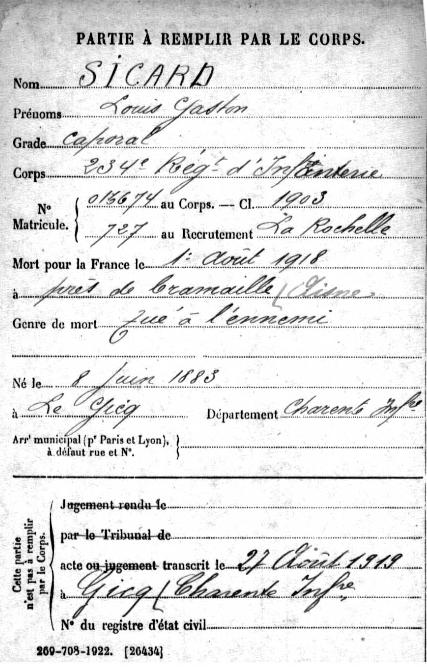 PARTIE À REMPLIR PAR LE CORPS.
Nom SICARD
Prénoms Louis Gaston
Grade caporal
Corps 234e Régt d'Infanterie
N° Matricule. { 015674 au Corps. — Cl. 1903
727 au Recrutement La Rochelle
Mort pour la France le 1er Août 1918
à près de Cramaille (Aisne
Genre de mort Tué à l'ennemi
Né le 8 Juin 1883
à Le Gicq Département Charente Infre
Arrt municipal (pr Paris et Lyon), à défaut rue et N°. }
Cette partie n'est pas à remplir par le Corps.
Jugement rendu le
par le Tribunal de
acte ou jugement transcrit le 27 Août 1919
à Gicq (Charente Infre
N° du registre d'état civil
269-708-1922. [26434]